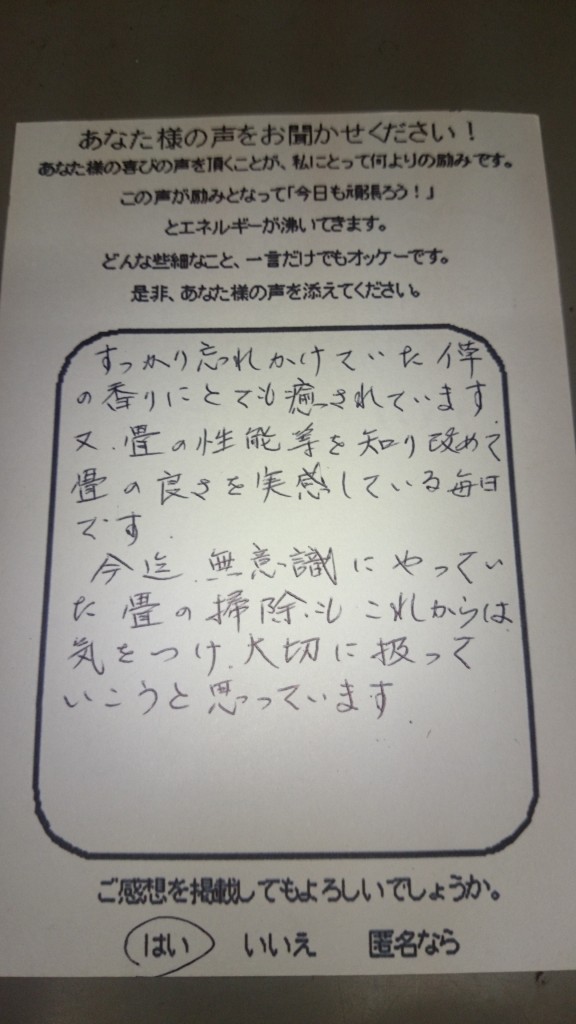 あなた様の声をお聞かせください！
あなた様の喜びの声を頂くことが、私にとって何よりの励みです。
この声が励みとなって「今日も頑張ろう！」
とエネルギーが沸いてきます。
どんな些細なこと、一言だけでもオッケーです。
是非、あなた様の声を添えてください。
すっかり忘れかけていた
の香りにとても癒されています
又、畳の性能等を知り改めて
畳の良さを実感している毎日
です.
今迄、無意識にやってい
た畳の掃除もこれからは
気をつけ、大切に扱って
いこうと思っています
ご感想を掲載してもよろしいでしょうか。
はい いいえ 匿名なら